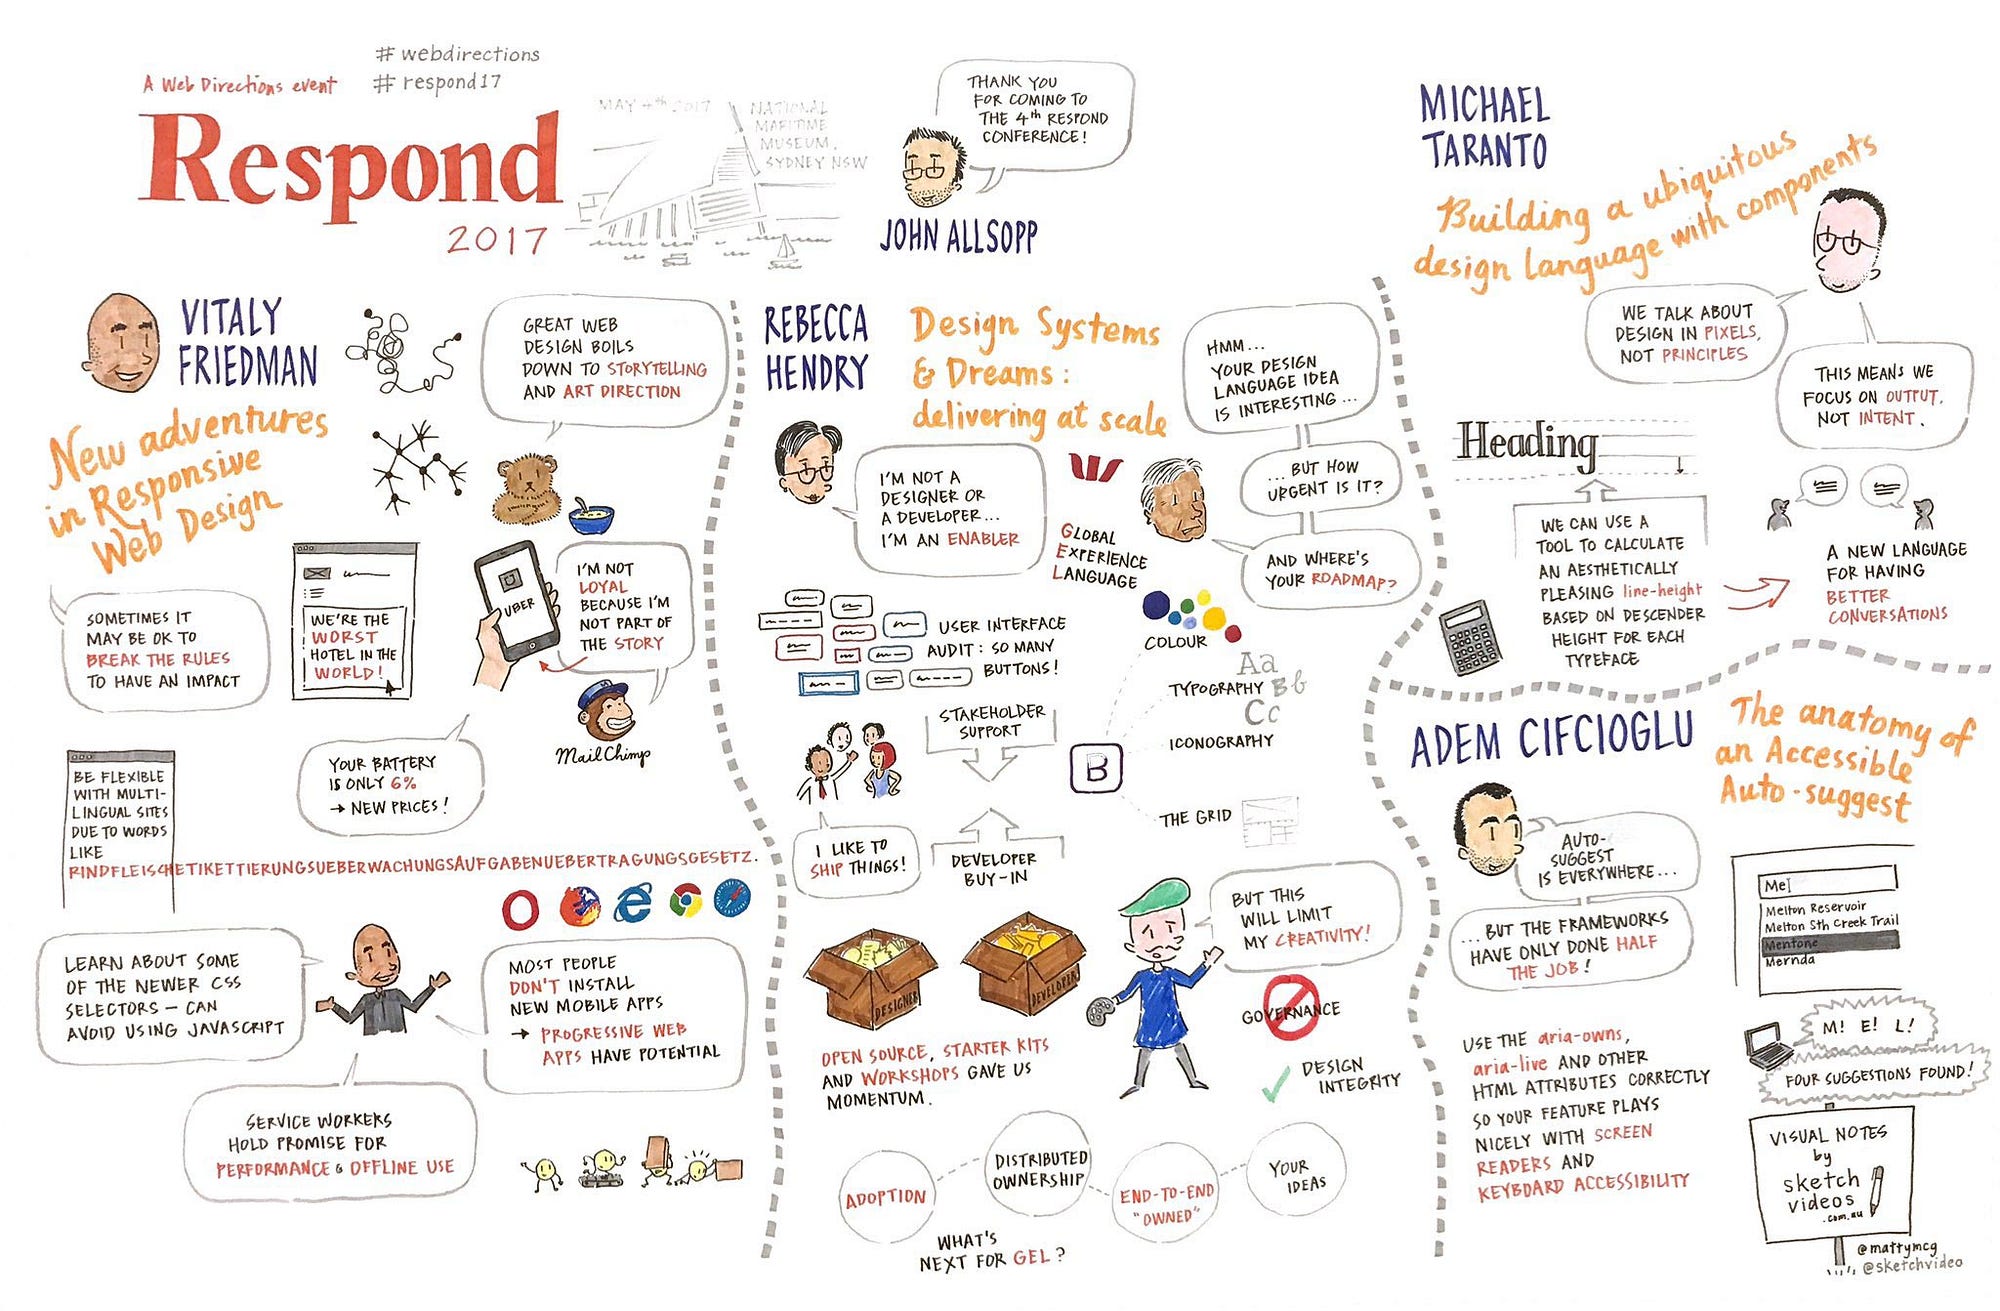 # webdirections
# respond17
A Web Directions event
Respond
2017
MAY 4th 2017
NATIONAL
MARITIME
MUSEUM,
SYDNEY NSW
THANK YOU
FOR COMING TO
THE 4th RESPOND
CONFERENCE!
JOHN ALLSOPP
VITALY
FRIEDMAN
New adventures
in Responsive
Web Design
GREAT WEB
DESIGN BOILS
DOWN TO STORYTELLING
AND ART DIRECTION
SOMETIMES IT
MAY BE OK TO
BREAK THE RULES
TO HAVE AN IMPACT
WE'RE THE
WORST
HOTEL IN THE
WORLD!
UBER
I'M NOT
LOYAL
BECAUSE I'M
NOT PART OF
THE STORY
MailChimp
YOUR BATTERY
IS ONLY 6%
→ NEW PRICES!
BE FLEXIBLE
WITH MULTI-
LINGUAL SITES
DUE TO WORDS
LIKE
RINDFLEISCHETIKETTIERUNGSUEBERWACHUNGSAUFGABENUEBERTRAGUNGSGESETZ.
LEARN ABOUT SOME
OF THE NEWER CSS
SELECTORS – CAN
AVOID USING JAVASCRIPT
MOST PEOPLE
DON'T INSTALL
NEW MOBILE APPS
→ PROGRESSIVE WEB
APPS HAVE POTENTIAL
SERVICE WORKERS
HOLD PROMISE FOR
PERFORMANCE & OFFLINE USE
REBECCA
HENDRY
Design Systems
& Dreams:
delivering at scale
I'M NOT A
DESIGNER OR
A DEVELOPER...
I'M AN ENABLER
GLOBAL
EXPERIENCE
LANGUAGE
HMM...
YOUR DESIGN
LANGUAGE IDEA
IS INTERESTING...
...BUT HOW
URGENT IS IT?
AND WHERE'S
YOUR ROADMAP?
USER INTERFACE
AUDIT: SO MANY
BUTTONS!
STAKEHOLDER
SUPPORT
I LIKE TO
SHIP THINGS!
DEVELOPER
BUY-IN
B
COLOUR
Aa
TYPOGRAPHY Bb
Cc
ICONOGRAPHY
THE GRID
DESIGNER
DEVELOPER
BUT THIS
WILL LIMIT
MY CREATIVITY!
GOVERNANCE
DESIGN
INTEGRITY
OPEN SOURCE, STARTER KITS
AND WORKSHOPS GAVE US
MOMENTUM.
ADOPTION
DISTRIBUTED
OWNERSHIP
END-TO-END
"OWNED"
YOUR
IDEAS
WHAT'S
NEXT FOR GEL?
MICHAEL
TARANTO
Building a ubiquitous
design language with components
WE TALK ABOUT
DESIGN IN PIXELS,
NOT PRINCIPLES
THIS MEANS WE
FOCUS ON OUTPUT,
NOT INTENT.
Heading
WE CAN USE A
TOOL TO CALCULATE
AN AESTHETICALLY
PLEASING line-height
BASED ON DESCENDER
HEIGHT FOR EACH
TYPEFACE
A NEW LANGUAGE
FOR HAVING
BETTER
CONVERSATIONS
ADEM CIFCIOGLU
The anatomy of
an Accessible
Auto-suggest
AUTO-
SUGGEST
IS EVERYWHERE...
...BUT THE FRAMEWORKS
HAVE ONLY DONE HALF
THE JOB!
Me
Melton Reservoir
Melton Sth Creek Trail
Mentone
Mernda
M! E! L!
FOUR SUGGESTIONS FOUND!
USE THE aria-owns,
aria-live AND OTHER
HTML ATTRIBUTES CORRECTLY
SO YOUR FEATURE PLAYS
NICELY WITH SCREEN
READERS AND
KEYBOARD ACCESSIBILITY
VISUAL NOTES
by
sketch
videos
.com.au
@mattymcg
@sketchvideo